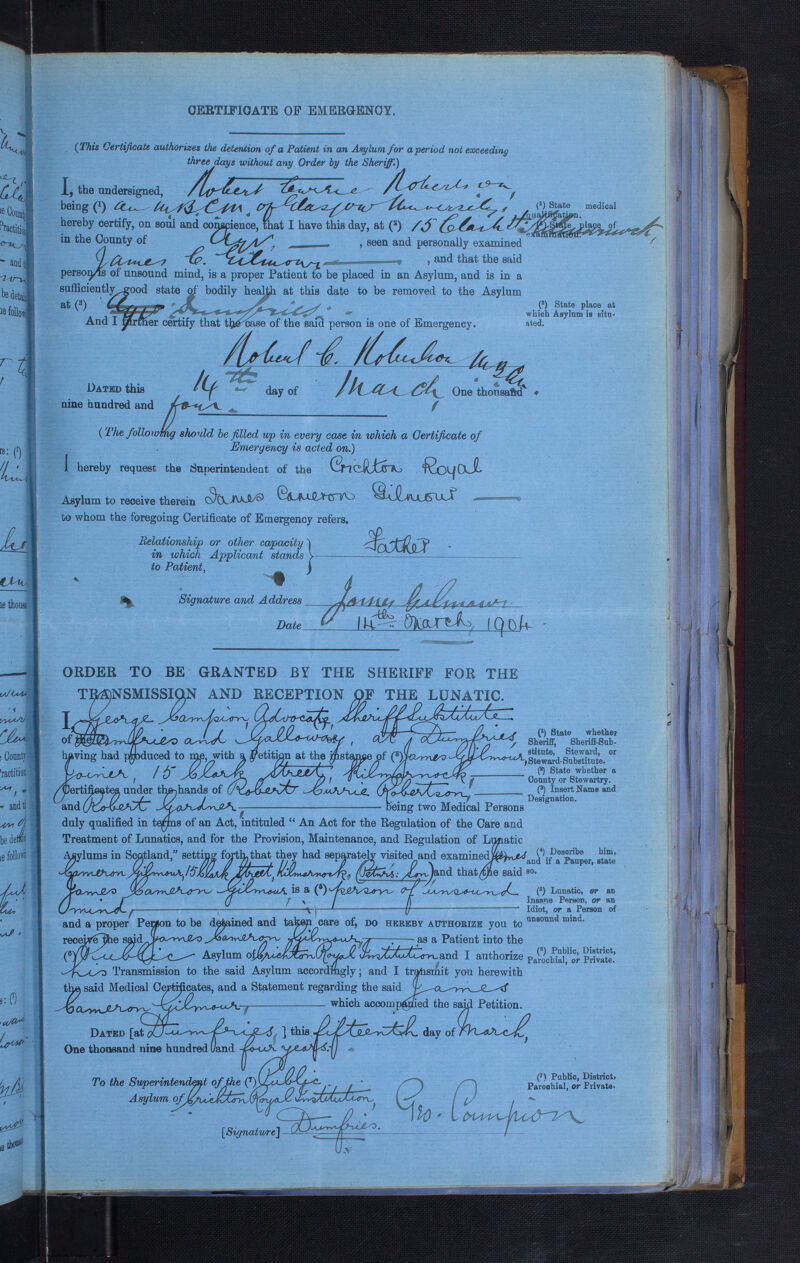 CERTIFICATE OF EMERGENCY.
(This Certificate authorizes the detention of a Patient in an Asylum for a period not exceeding
three days without any Order by the Sheriff.)
I, the undersigned, Robert Currie Robertson,
being (¹) an M.B. C.M. of Glasgow University,
(¹) State medical
qualification.
hereby certify, on soul and conscience, that I have this day, at (²) 15 Clark St. Kilmarnock,
(²) State place of
examination.
in the County of Ayr, , seen and personally examined
James C. Gilmour , and that the said
person is of unsound mind, is a proper Patient to be placed in an Asylum, and is in a
sufficiently good state of bodily health at this date to be removed to the Asylum
at (³) Ayr Dumfries.
(³) State place at
which Asylum is situ-
ated.
And I further certify that the case of the said person is one of Emergency.
Robert C. Robertson M.B. C.M.
DATED this 14th day of March One thousand
nine hundred and four.
(The following should be filled up in every case in which a Certificate of
Emergency is acted on.)
I hereby request the Superintendent of the Crichton Royal
Asylum to receive therein James Cameron Gilmour
to whom the foregoing Certificate of Emergency refers.
Relationship or other capacity
in which Applicant stands
to Patient,
Father
Signature and Address James Gilmour
Date 14th March, 1904
ORDER TO BE GRANTED BY THE SHERIFF FOR THE
TRANSMISSION AND RECEPTION OF THE LUNATIC.
I, George Campion, Advocate, Sheriff Substitute
of Dumfries and Galloway, at Dumfries,
(¹) State whether
Sheriff, Sheriff-Sub-
stitute, Steward, or
Steward-Substitute.
having had produced to me, with a Petition at the instance of (³) James Gilmour,
Joiner, 15 Clark Street, Kilmarnock,
(²) State whether a
County or Stewartry.
(³) Insert Name and
Designation.
Certificates under the hands of Robert Currie Robertson,
and Robert Gardner being two Medical Persons
duly qualified in terms of an Act, intituled “ An Act for the Regulation of the Care and
Treatment of Lunatics, and for the Provision, Maintenance, and Regulation of Lunatic
Asylums in Scotland,” setting forth that they had separately visited and examined James
(⁴) Describe him,
and if a Pauper, state
so.
Cameron Gilmour, 15 Clark Street, Kilmarnock, (Petnrs: Son) and that the said
James Cameron Gilmour is a (⁵) person of unsound
mind,
(⁵) Lunatic, or an
Insane Person, or an
Idiot, or a Person of
unsound mind.
and a proper Person to be detained and taken care of, DO HEREBY AUTHORIZE you to
receive the said James Cameron Gilmour, as a Patient into the
(⁶) Public Asylum of Crichton Royal Institution and I authorize
(⁶) Public, District,
Parochial, or Private.
his Transmission to the said Asylum accordingly; and I transmit you herewith
the said Medical Certificates, and a Statement regarding the said James
Cameron Gilmour, which accompanied the said Petition.
DATED [at Dumfries, ] this fifteenth day of March,
One thousand nine hundred and four years.
To the Superintendent of the (⁷) Public
(⁷) Public, District,
Parochial, or Private.
Asylum of Crichton Royal Institution,
Dumfries.
[Signature] Geo. Campion